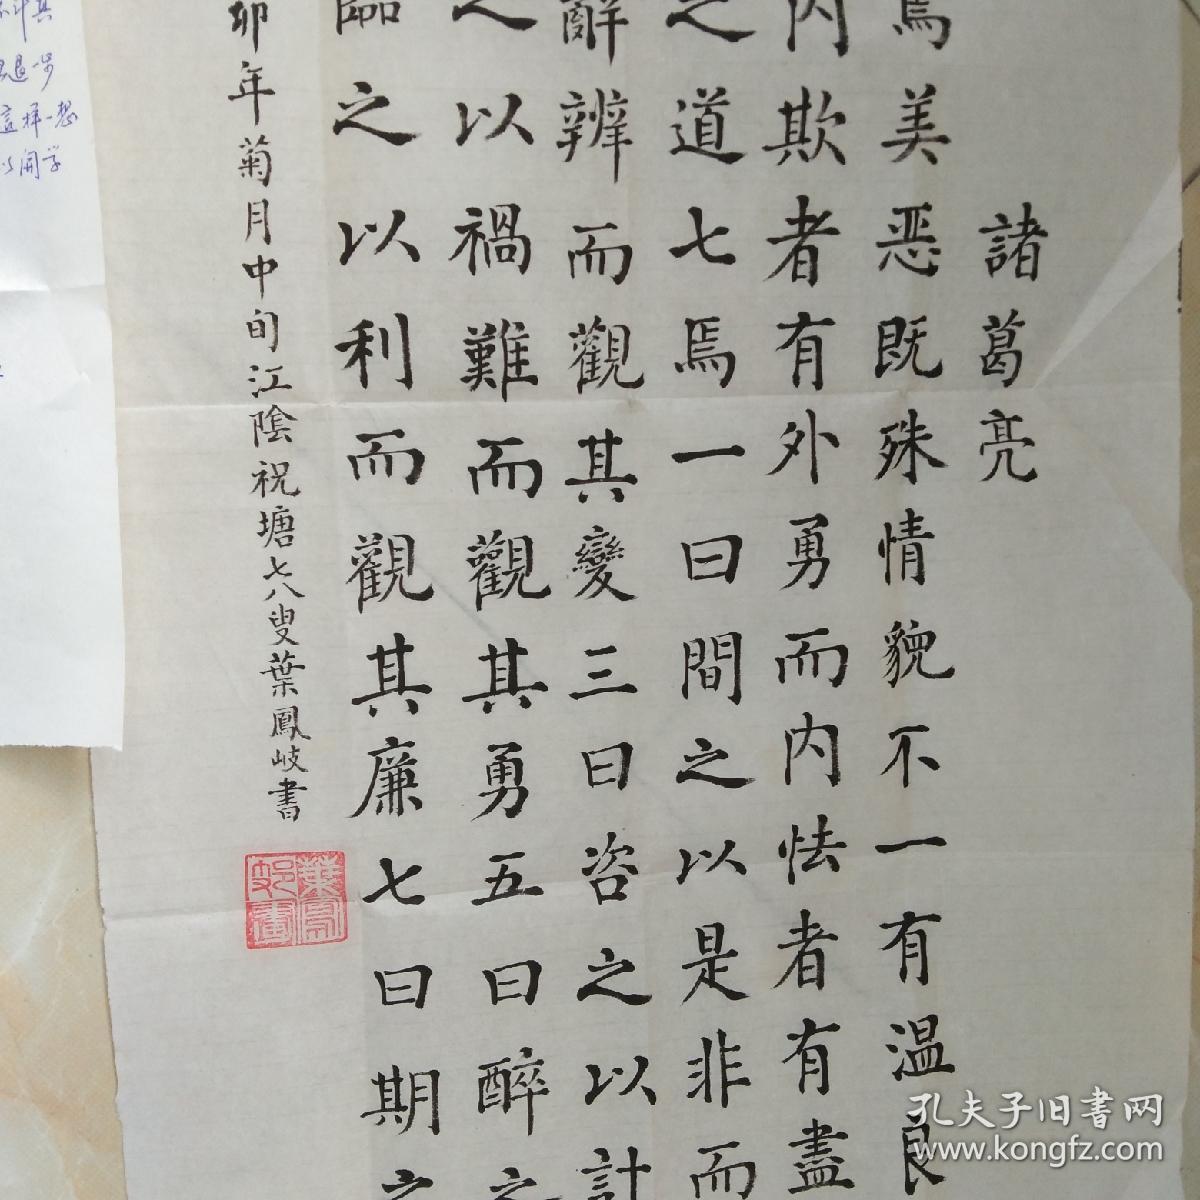 諸葛亮
焉美恶既殊情貌不一有温良
内欺者有外勇而内怯者有盡
之道七焉一曰間之以是非而
辭辨而觀其變三曰咨之以計
之以禍難而觀其勇五曰醉之
臨之以利而觀其廉七曰期之
卯年菊月中旬江陰祝塘七八叟葉鳳岐書
退一步
這样一想
以開学
孔夫子旧书网
www.kongfz.com